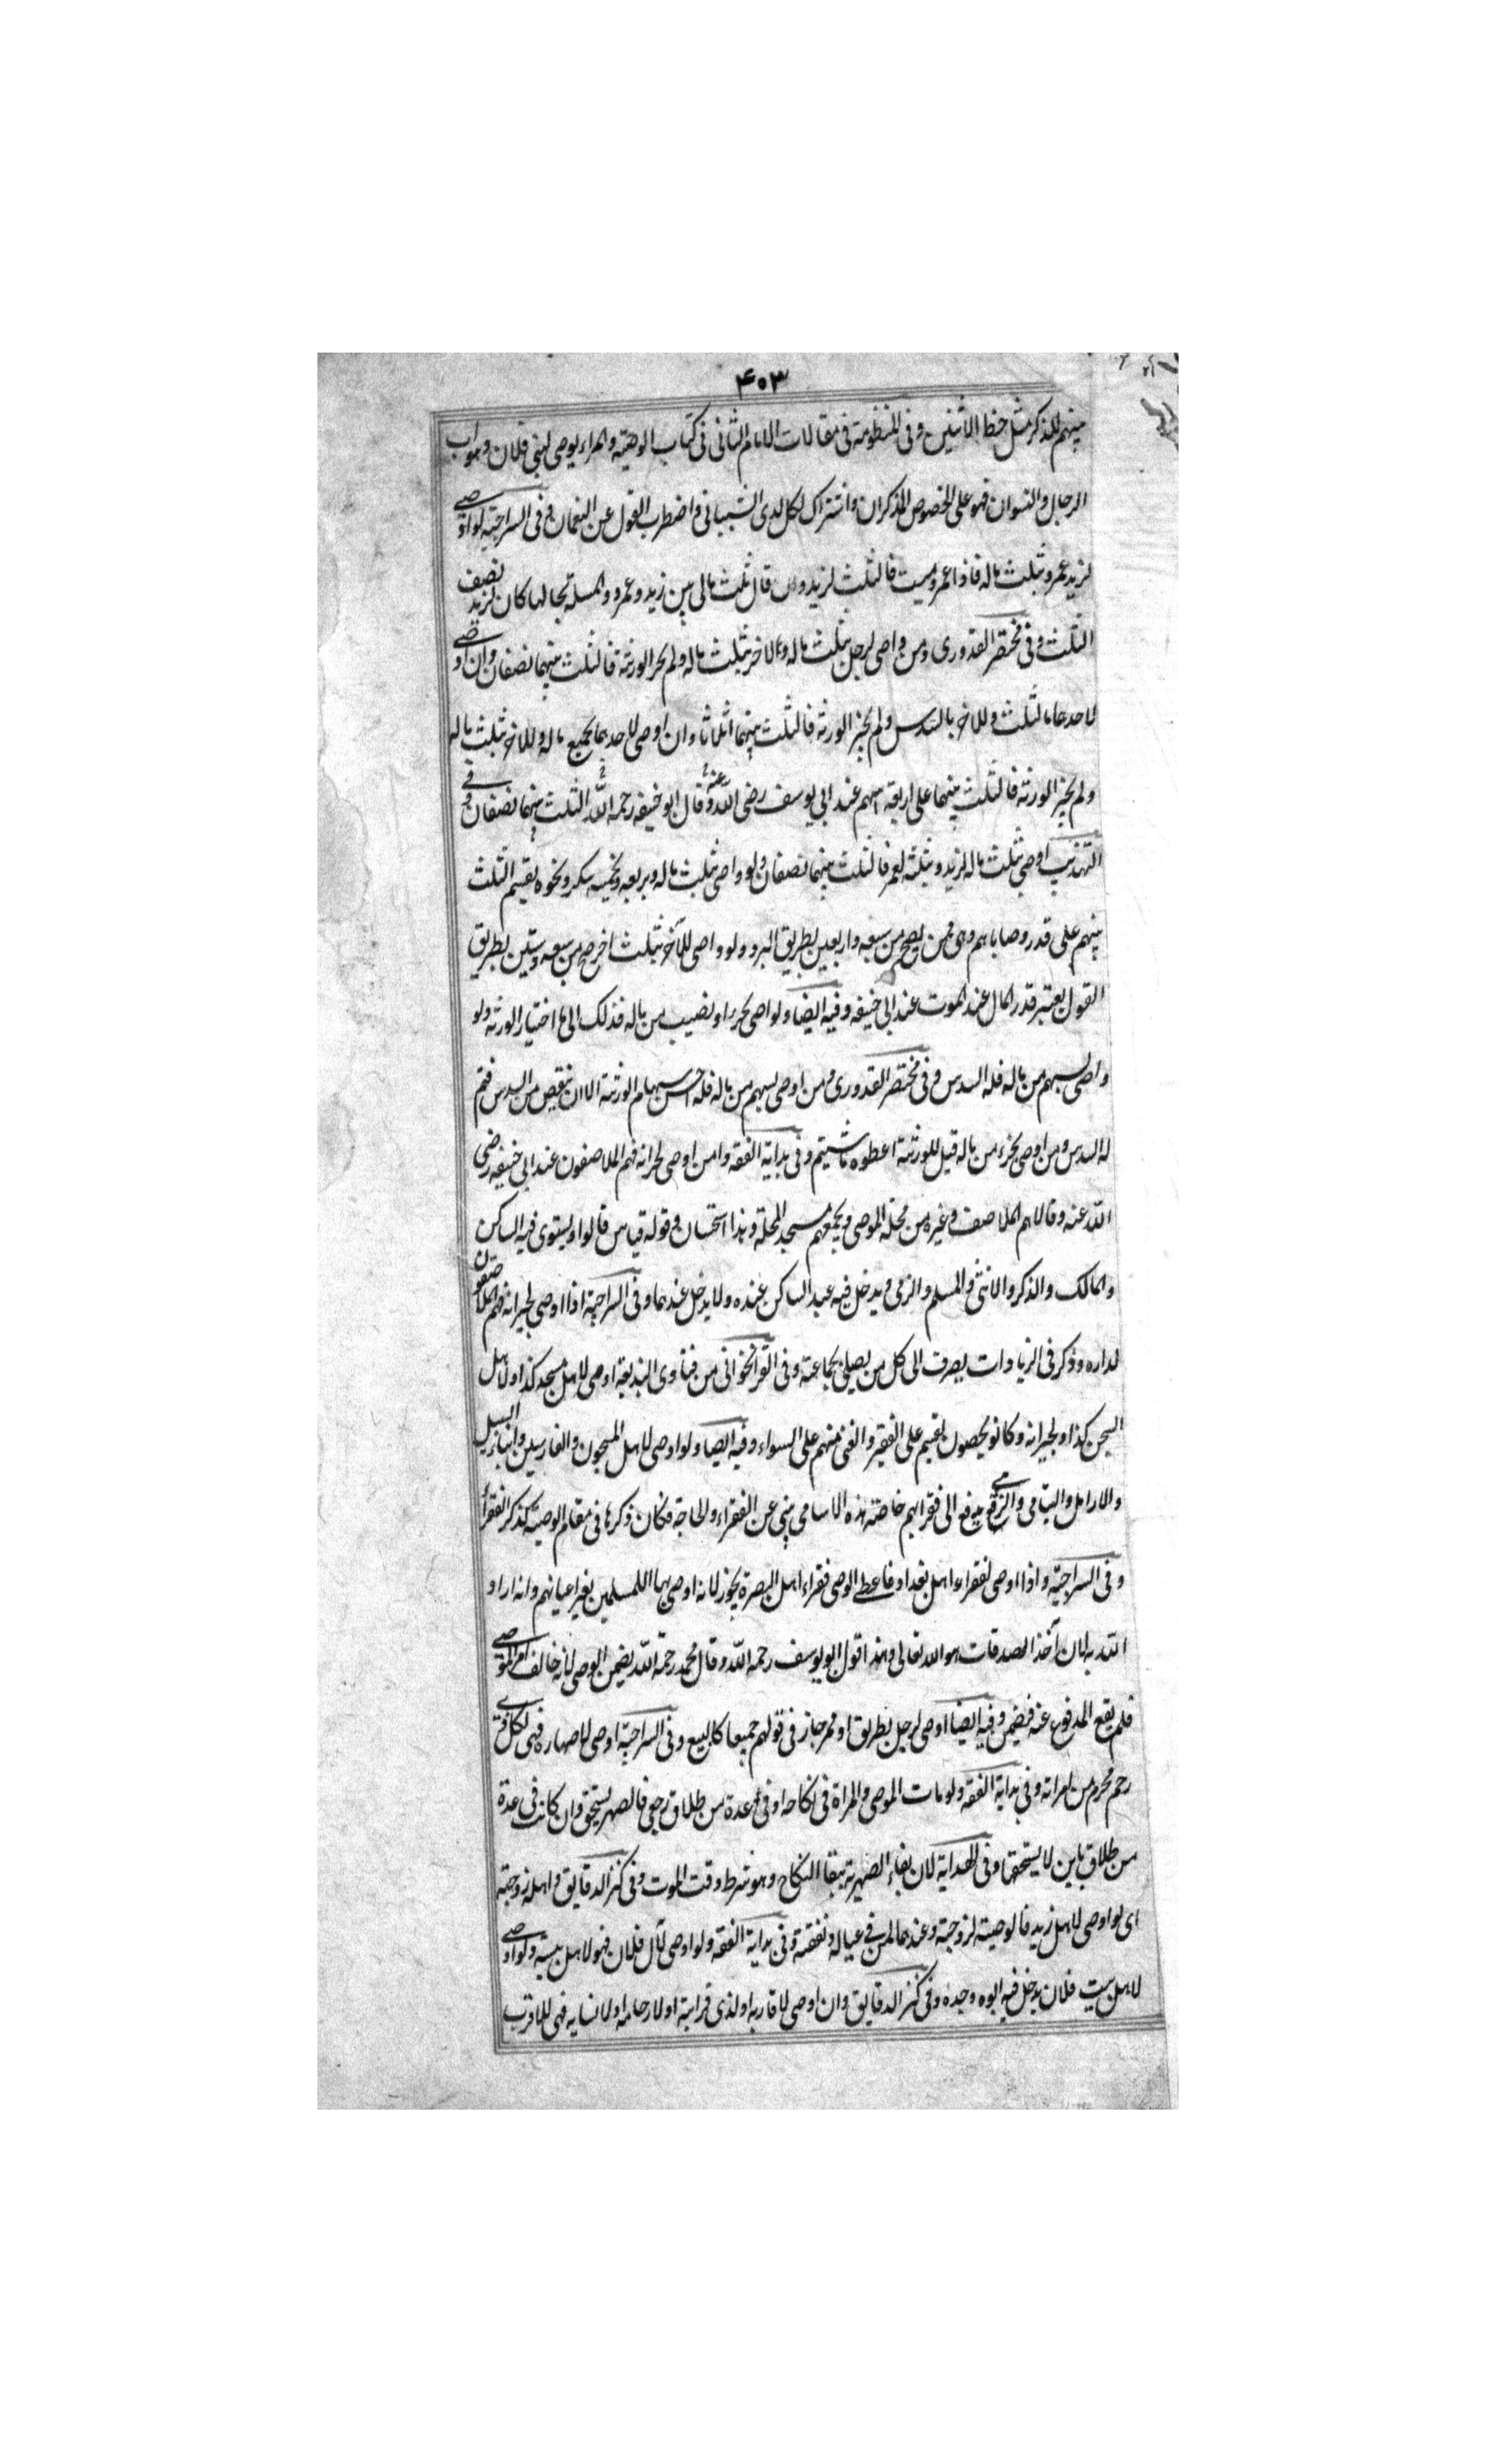 ۴۰۳
بينهم للذكر مثل حظ الأنثيين وفى المنظومة فى مقالات الامام الثانى فى كتاب الوصية والمراء يوصى لبنى فلان وهو اب
الرجال والنسوان فهو على الخصوص للذكران واشتراك لكل لدى الشيبانى واضطرب القول عن النعمان وفى السراجية لو اوصى
لزيد عمرو بثلث ماله فاذا عمرو ميت فالثلث لزيد وان قال ثلث مالى بين زيد وعمرو والمسلة بحالها كان لزيد نصف
الثلث وفى مختصر القدورى ومن واصى لرجل بثلث ماله والاخر بثلث ماله ولم يجز الورثة فالثلث بينهما نصفان وان اوصى
لاحدهما بالثلث وللاخر بالسدس ولم يجز الورثة فالثلث بينهما اثلاثا وان اوصى لاحدهما بجميع ماله وللاخر بثلث ماله
ولم يجز الورثة فالثلث بينهما على اربعة اسهم عند ابى يوسف رضى الله عنه وقال ابو حنيفه رحمه الله الثلث بينهما نصفان وفى
التهذيب اوصى بثلث ماله لزيد وبثلثه لعمر فالثلث بينهما نصفان ولو واصى بثلث ماله وبربعه وبخمسه لبكر ونحوه يقسم الثلث
بينهم على قدر وصاياهم وهى ممن يصح من سبعه واربعين بطريق البر ولو واصى للآخر بثلث اخر صح من سبعه وستين بطريق
القول يعتبر قدر المال عند الموت عند ابى حنيفه وفيه ايضا ولو اصى بجزء او نصيب من ماله فذلك الى ما اختيار الورثه ولو
واصى بسهم من ماله فله السدس وفى مختصر القدورى ومن اوصى بسهم من ماله فله اخس سهام الورثة الا ان ينقص من السدس فيتم
له السدس ومن اوصى بجزء من ماله قيل للورثة اعطوه ماشيتم وفى بداية الفقه وامن اوصى لجيرانه فهم الملاصقون عند ابى حنيفه رضى
الله عنه وقالا هم الملاصق وغيره من محلة الموصى ويجمعهم مسجد المحلة وهذا استحسان وقوله قياس قالوا ويستوى فيه الساكن
والمالك والذكر والانثى والمسلم والذمى ويدخل فيه عبد الساكن عنده ولا يدخل عندهما وفى السراجية اذا اوصى لجيرانه فهم الملاصقون
لداره وذكر فى الزيادات يصرف الى كل من يصلى بجماعته وفى القراخوانى من فتاوى البديعة اوصى لاهل مسجد كذا ولاهل
السجن كذا ولجيرانه وكانو يحصون يقسم على الفقير والغنى منهم على السواء وفيه ايضا ولو اوصى لاهل المسجون والغارمين وابناء السبيل
والارامل واليتامى والزمنى يدفع الى فقرايهم خاصة هذه الاسامى ينبى عن الفقراء والحاجة فكان ذكرها فى مقام الوصية كذكر الفقراء
وفى السراجية واذا اوصى لفقراء اهل بغداد فاعطى الوصى فقراء اهل البصرة يجوز لانه اوصى بها اللمسلمين بغير اعيانهم وانه اراد
الله به لان آخذ الصدقات هو الله تعالى وهذا قول ابو يوسف رحمه الله وقال محمد رحمة الله يضمن الوصى لانه خالف امر الموصى
فلم يقع المدفوع عنه فيضمن وفيه ايضا اوصى لرجل بطريق او ممر جاز فى قولهم جميعا كالبيع وفى السراجية اوصى لاصهاره فهى لكل ذى
رحم محرم من امراته وفى بداية الفقه ولو مات الموصى والمراة فى نكاحه او فى عدة من طلاق رجعى فالصهر يستحق وان كانت فى عدة
من طلاق باين لا يستحقها وفى الهداية لان بقاء الصهرية ببقا النكاح وهو شرط وقت الموت وفى كنز الدقايق واهله زوجته
اى لو اوصى لاهل زيد فالوصية لزوجته وعندهما لمن فى عياله ونفقته وفى بداية الفقه ولو اوصى لآل فلان فهو لاهل بيته ولو اوصى
لاهل بيت فلان يدخل فيه ابوه وجده وفى كنز الدقايق وان اوصى لاقاربه او لذى قرابة او لارحامه او لانسابه فهى للاقرب